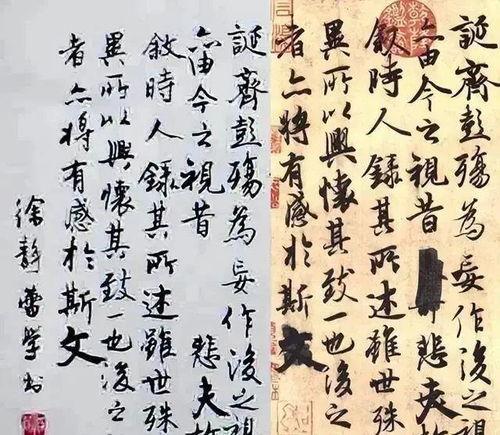 誕齊彭殤為妄作後之視
亦由今之視昔悲夫故
敘時人錄其所述雖世殊
異所以興懷其致一也後之
者亦將有感於斯文
徐靜蕾學書
誕齊彭殤為妄作後之視
亦由今之視昔悲夫故
敘時人錄其所述雖世殊
異所以興懷其致一也後之
者亦將有感於斯文